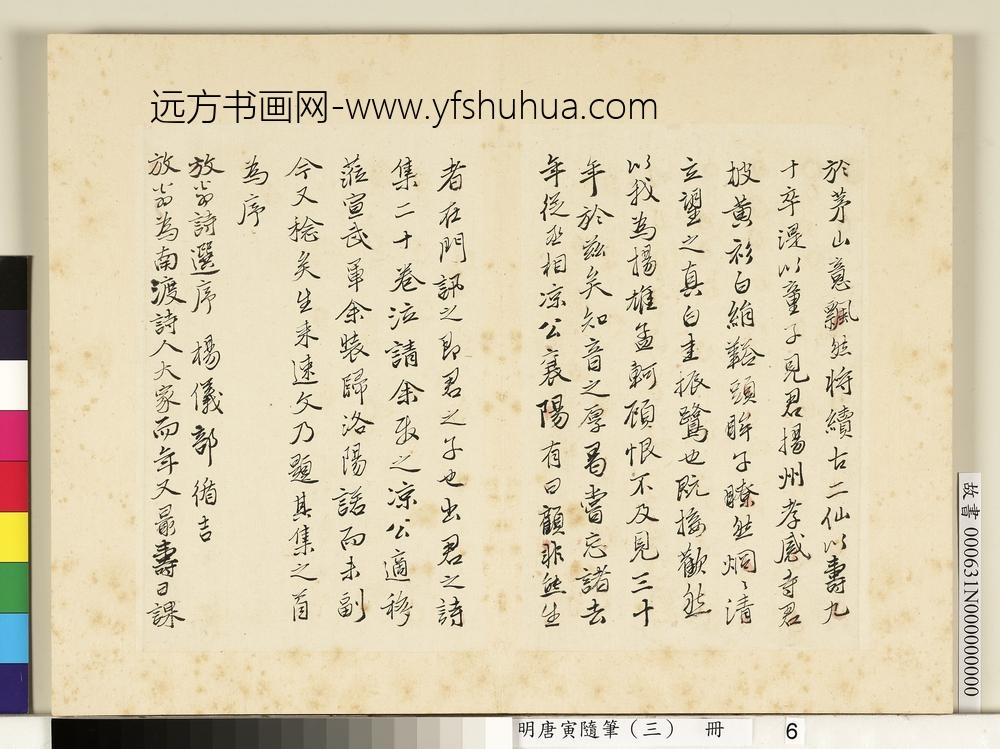 远方书画网-www.yfshuhua.com
於茅山意飄然将續古二仙以壽九
十卒湜以童子見君揚州孝感寺君
披黄衫白絹鞳頭眸子瞭然炯炯清
立望之真白圭振鷺也既接歡然
以我為揚雄孟軻頋恨不及見三十
年於茲矣知音之厚曷嘗忘諸去
年從丞相凉公襄陽有曰顧非熊生
者在門訊之即君之子也出君之詩
集二十卷泣請余發之凉公適移
蒞宣武軍余裝歸洛陽諾而未副
今又稔矣生来速文乃題其集之首
為序
放翁詩選序 楊儀部循吉
放翁為南渡詩人大家而年又最壽日課
故書 000631N000000000
明唐寅隨筆（三） 冊 6